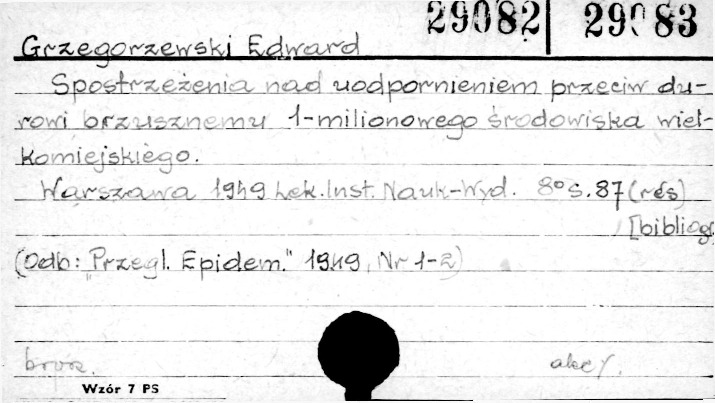 29082 | 29083
Grzegorzewski Edward
Spostrzeżenia nad uodpornieniem przeciw du-
rowi brzusznemu 1-milionowego środowiska wiel-
komiejskiego.
Warszawa 1949 Lek. Inst. Nauk-Wyd. 8° s. 87 (rés)
[bibliogr
(Odb: "Przegl. Epidem." 1949, Nr 1-2)
Wzór 7 PS